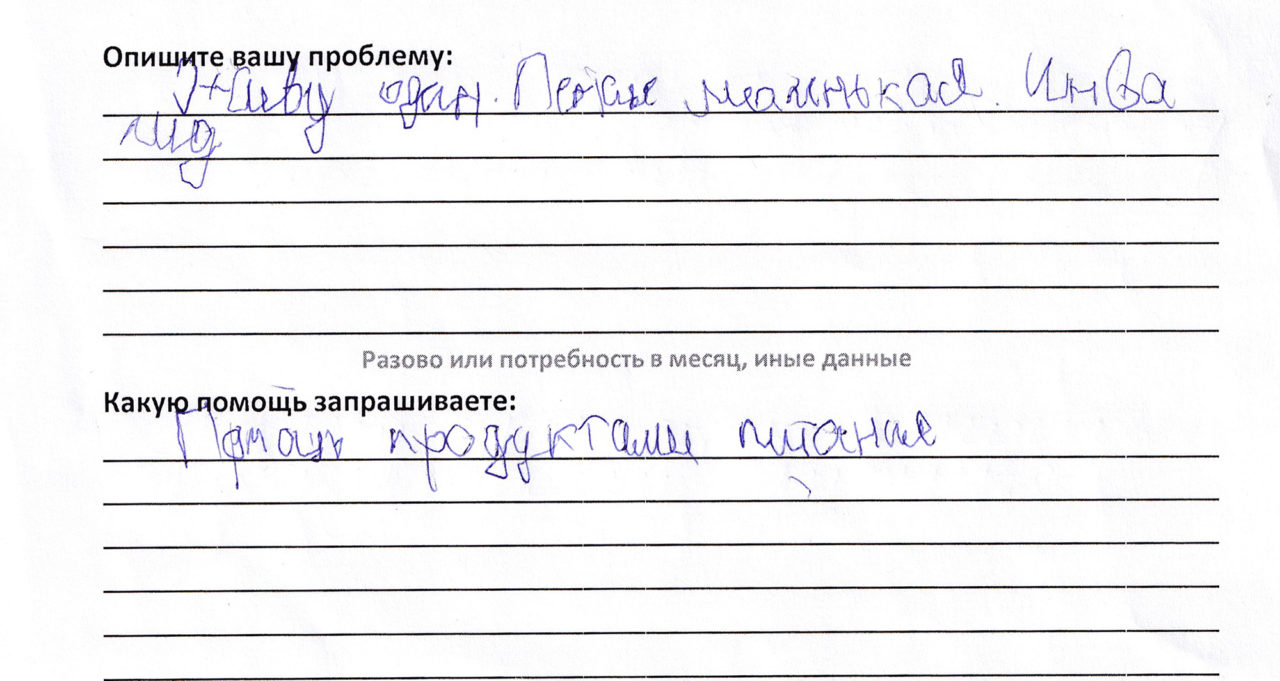 Опишите вашу проблему:
Живу один. Пенсия маленькая. Инва
лид
Разово или потребность в месяц, иные данные
Какую помощь запрашиваете:
Помощь продуктами питание